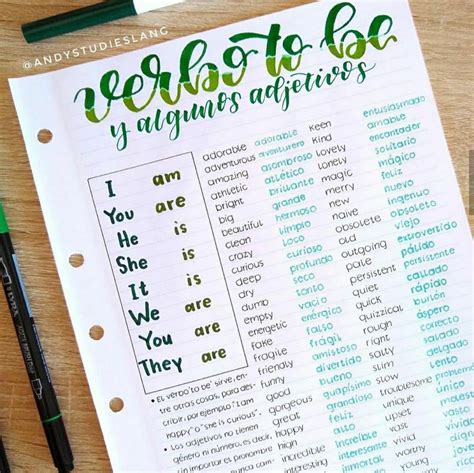 @ANDYSTUDIESLANG
verbo to be
y algunos adjetivos
I am
You are
He is
She is
It is
We are
You are
They are
• El verbo "to be" sirve, en-
tre otras cosas, para des-
cribir, por ejemplo: "I am
happy" o "she is curious".
• Los adjetivos no tienen
género ni número, es decir,
sin importar el pronombre nunca cam-
adorable adorable
adventurous aventurero
amazing asombroso
athletic atlético
bright brillante
big grande
beautiful hermoso
clean limpio
crazy loco
curious curioso
deep profundo
dry seco
dumb tonto
empty vacío
energetic enérgico
fake falso
fragile frágil
friendly amistoso
funny divertido
good bueno
gorgeous
great grandioso
happy feliz
high alto
incredible increíble
interesting interesante
keen entusiasmado
kind amable
lovely encantador
lonely solitario
magic mágico
merry feliz
new nuevo
naive ingenuo
obsolete obsoleto
old viejo
outgoing extrovertido
pale pálido
persistent persistente
quiet callado
quick rápido
quizzical burlón
right correcto
rough áspero
salty salado
slim delgado
slow lento
troublesome problemático
unique único
upset
vast vasto
vivid vívido
worried